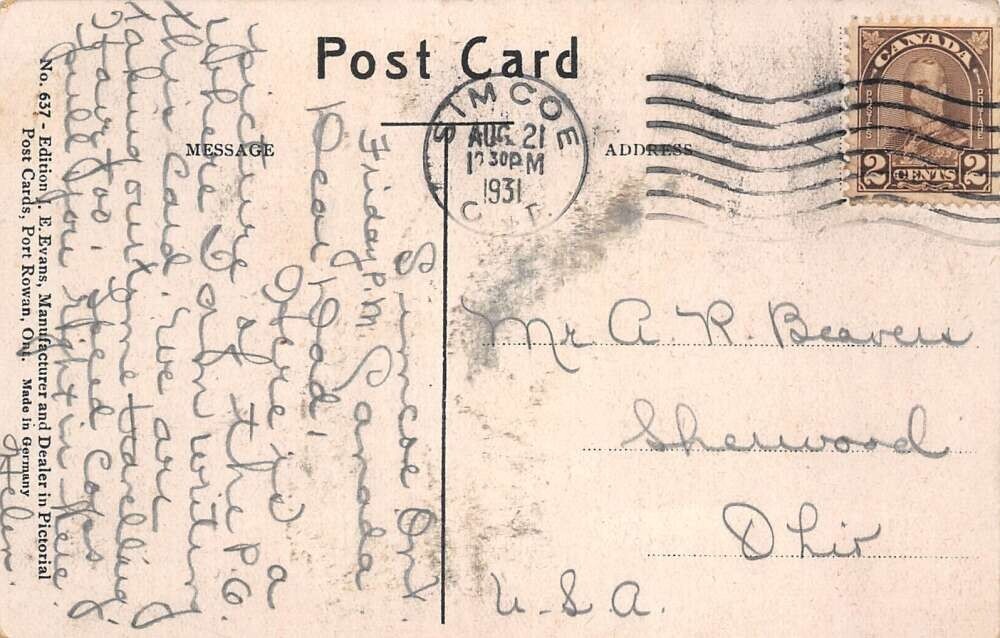 Post Card
MESSAGE
ADDRESS
CANADA
POSTES
POSTAGE
2 CENTS 2
SIMCOE
AUG 21
12 30 PM
1931
ONT.
Simcoe Ont
Friday P.M. Canada
Dear Dad,
Here is a
picture of the P.O
where I am writing
this card. We are
taking our time travelling
too. Speed Cops
pull you right in here.
Helen.
Mr. A. R. Beavers
Sherwood
Ohio
U.S.A.
No. 637 - Edition J. E. Evans, Manufacturer and Dealer in Pictorial
Post Cards, Port Rowan, Ont. Made in Germany